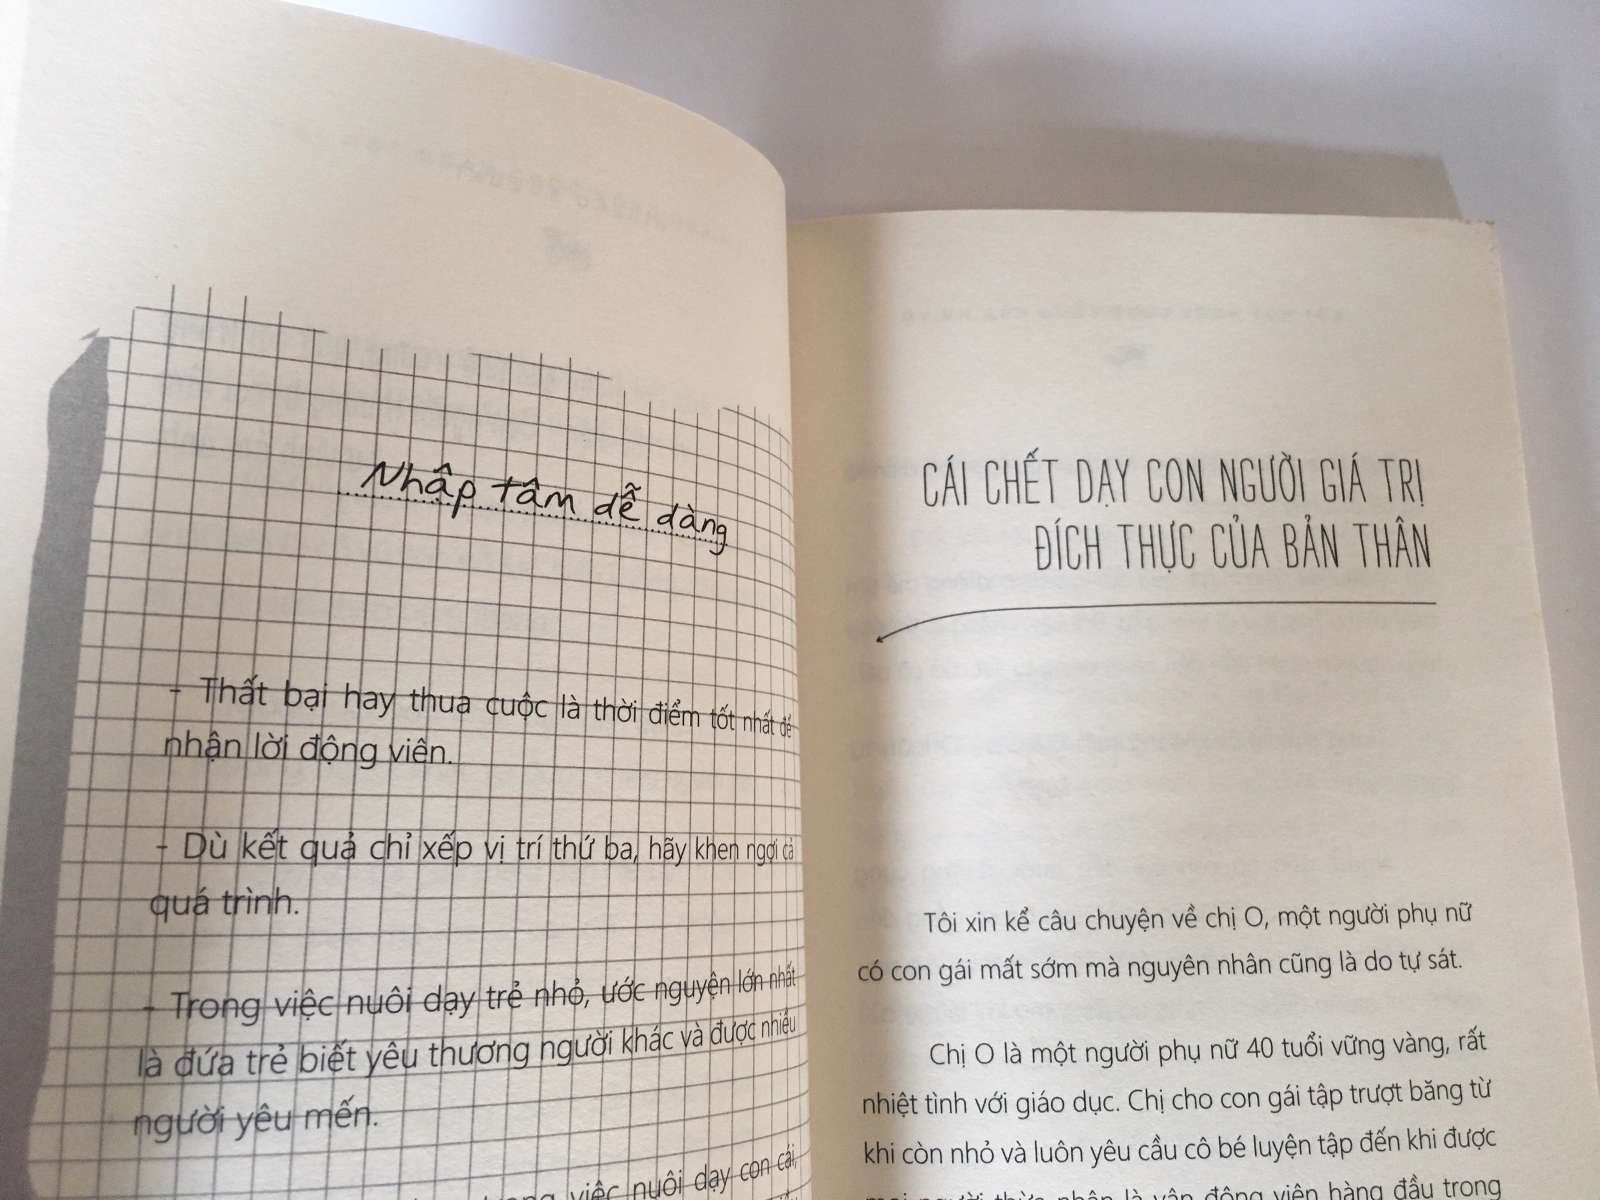 Nhập tâm dễ dàng
- Thất bại hay thua cuộc là thời điểm tốt nhất để
nhận lời động viên.
- Dù kết quả chỉ xếp vị trí thứ ba, hãy khen ngợi cả
quá trình.
- Trong việc nuôi dạy trẻ nhỏ, ước nguyện lớn nhất
là đứa trẻ biết yêu thương người khác và được nhiều
người yêu mến.
việc nuôi dạy con cái,
CÁI CHẾT DẠY CON NGƯỜI GIÁ TRỊ
ĐÍCH THỰC CỦA BẢN THÂN
Tôi xin kể câu chuyện về chị O, một người phụ nữ
có con gái mất sớm mà nguyên nhân cũng là do tự sát.
Chị O là một người phụ nữ 40 tuổi vững vàng, rất
nhiệt tình với giáo dục. Chị cho con gái tập trượt băng từ
khi còn nhỏ và luôn yêu cầu cô bé luyện tập đến khi được
mọi người thừa nhận là vận động viên hàng đầu trong